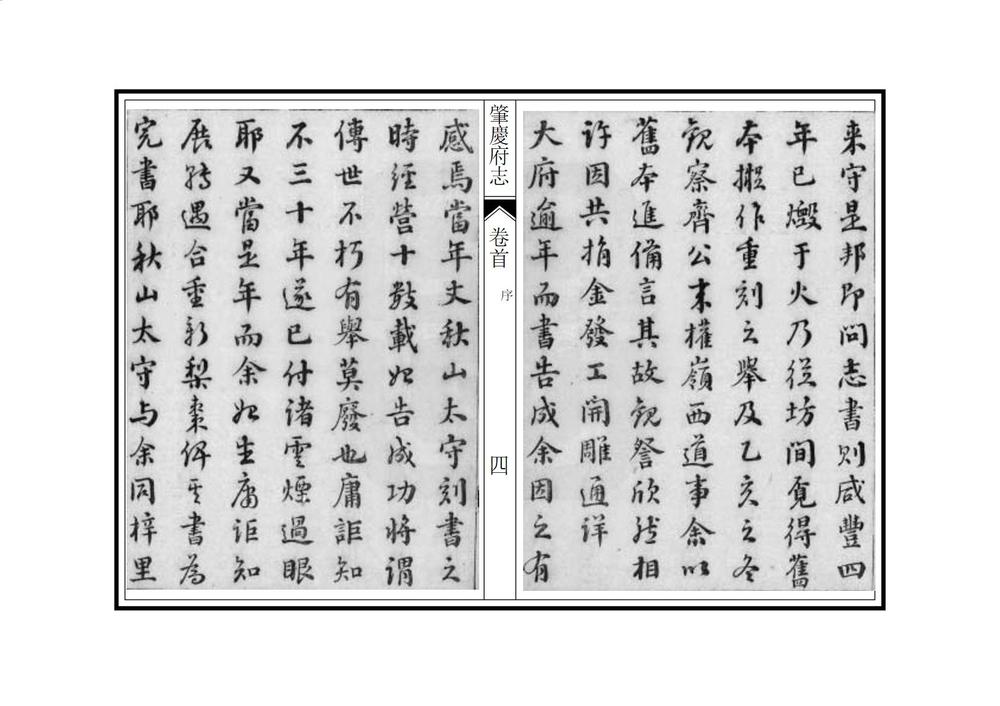 来守是邦即问志書则咸豐四
年已燬于火乃從坊間覓得舊
本擬作重刻之舉及乙亥之冬
観察齊公來權嶺西道事余以
舊本進備言其故観詧欣然相
许因共捐金發工開雕通详
大府逾年而書告成余因之有
肇慶府志
卷首
序
四
感焉當年丈秋山太守刻書之
時經營十數載始告成功将謂
傳世不朽有舉莫廢也庸詎知
不三十年遂已付诸雲煙過眼
耶又當是年而余始生庸詎知
展轉遇合重新梨棗俾其書為
完書耶秋山太守与余同梓里